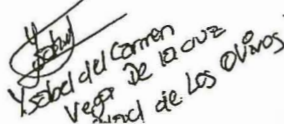 Ysabel
Ysabel del Carmen
Vega De la cruz
de Los Olivos